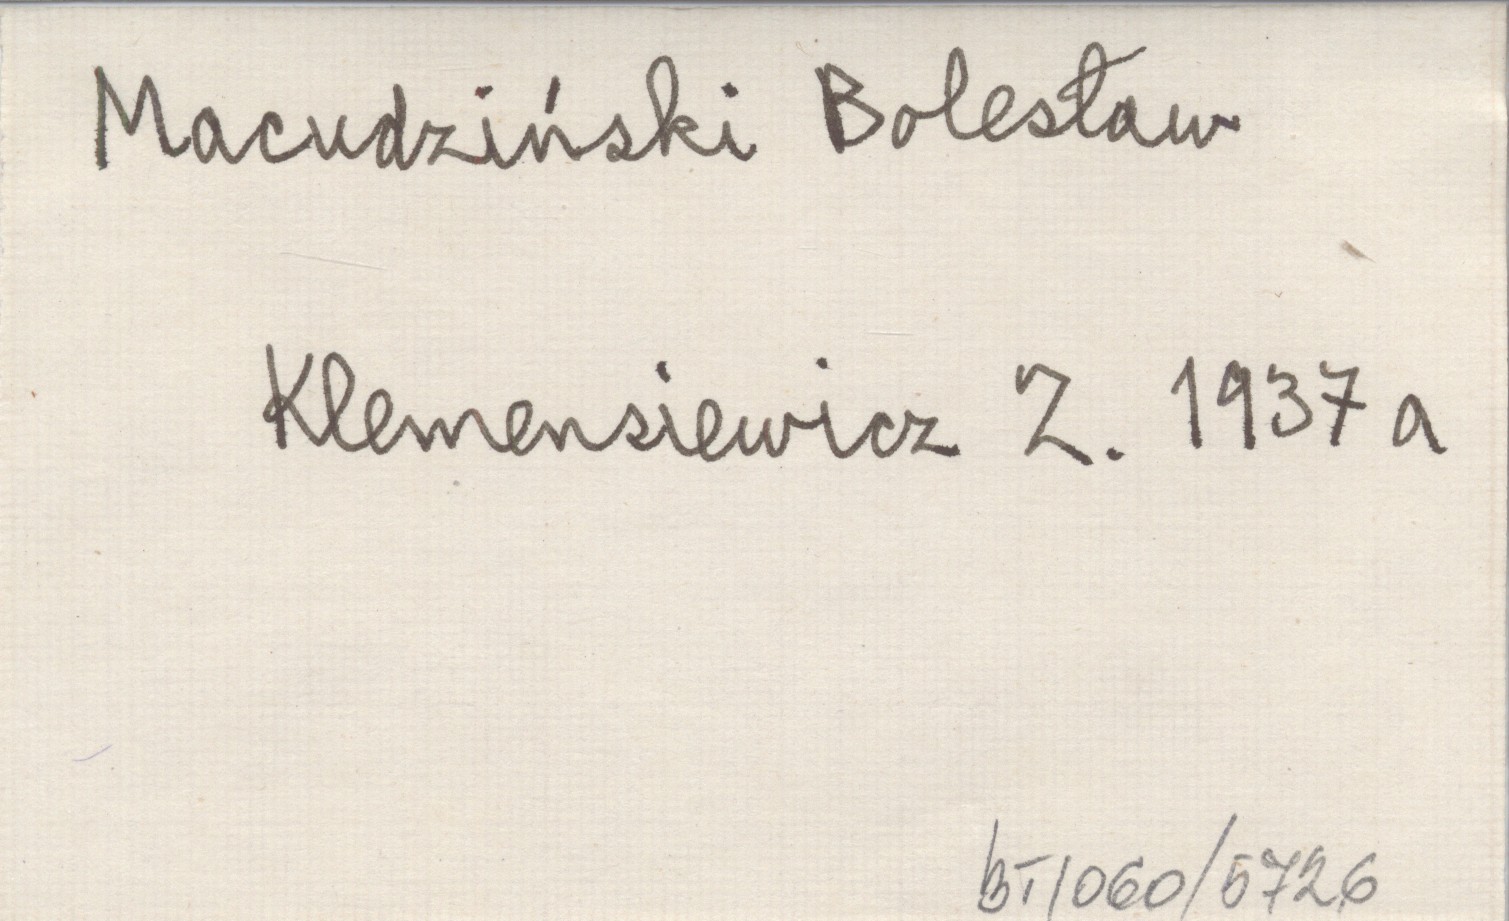 Macudziński Bolesław
Klemensiewicz Z. 1937 a
BT/060/5726